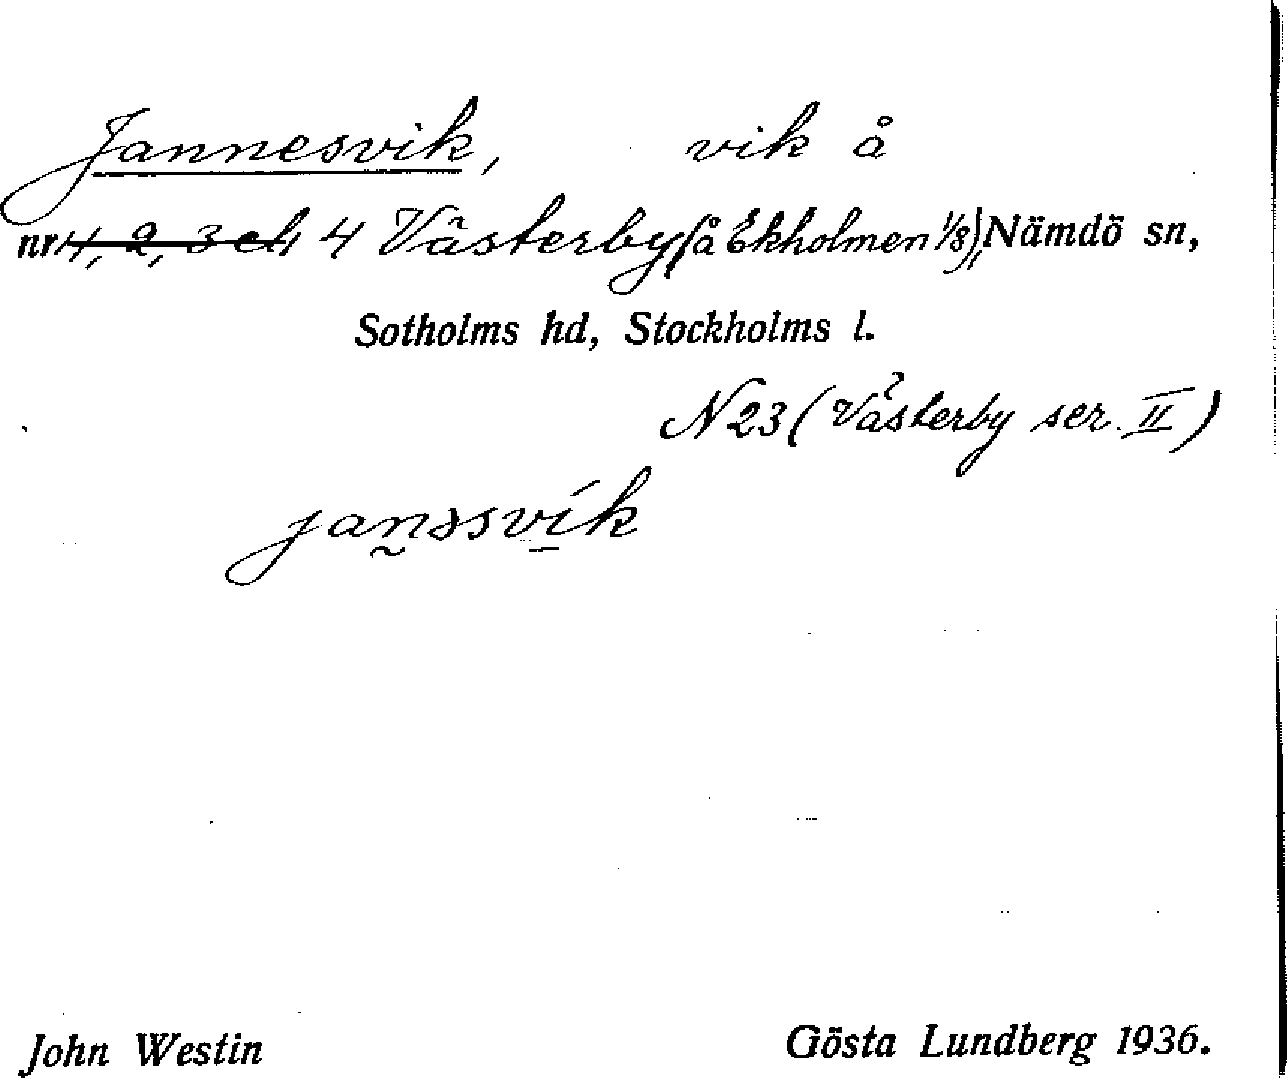 Jannesvik, vik å
nr 1, 2, 3 och 4 Västerby (å Ekholmen 1/8), Nämdö sn,
Sotholms hd, Stockholms l.
N 23 (Västerby ser. II)
janssvík
John Westin Gösta Lundberg 1936.